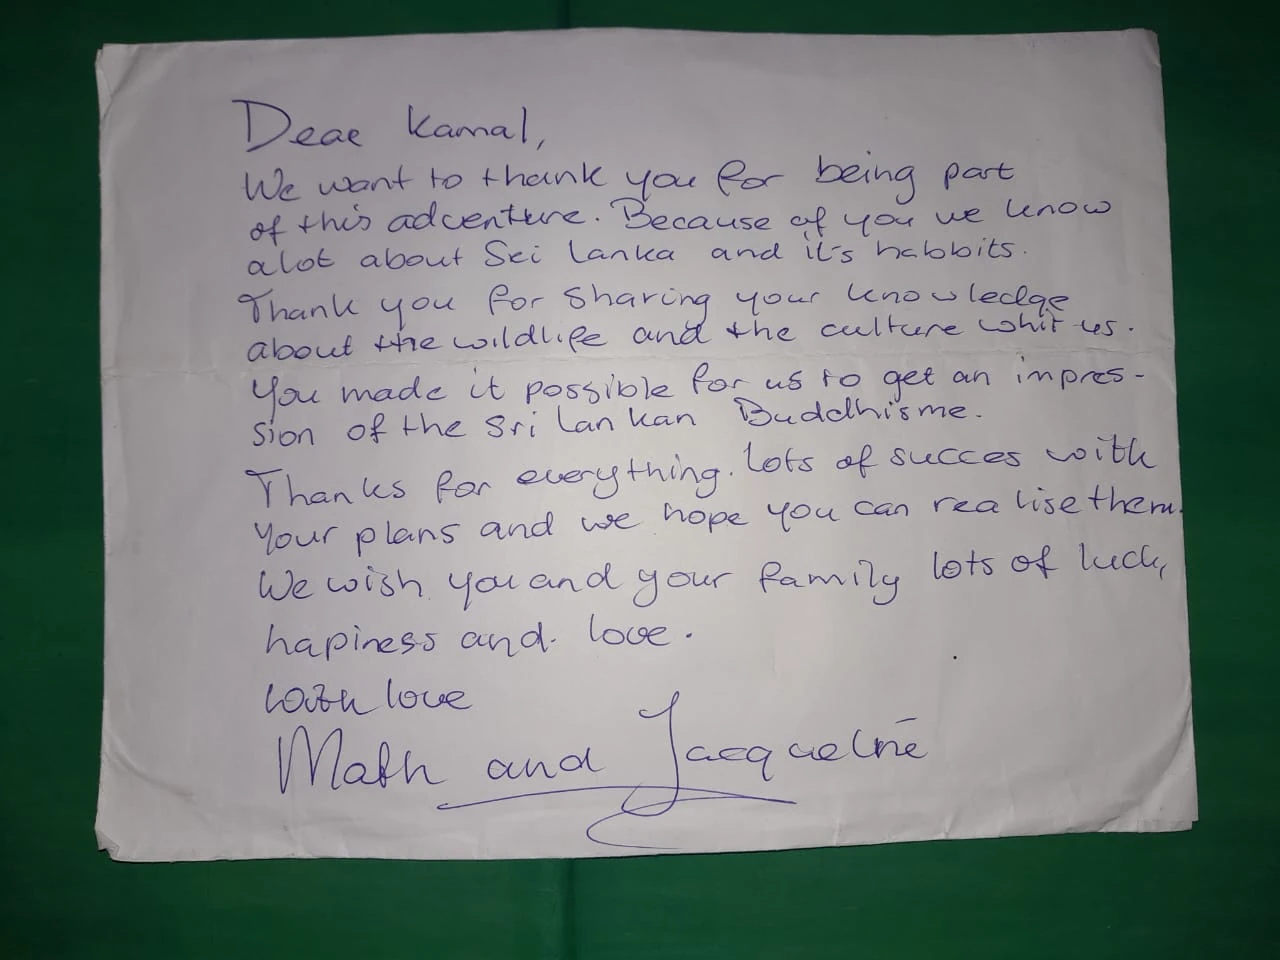 Dear Kamal,
We want to thank you for being part
of this adventure. Because of you we know
a lot about Sri Lanka and it's habbits.
Thank you for sharing your knowledge
about the wildlife and the culture whit us.
You made it possible for us to get an impres-
sion of the Sri Lankan Buddhisme.
Thanks for everything. Lots of succes with
your plans and we hope you can realise them.
We wish you and your family lots of luck,
hapiness and love.
With love
Math and Jacqueline